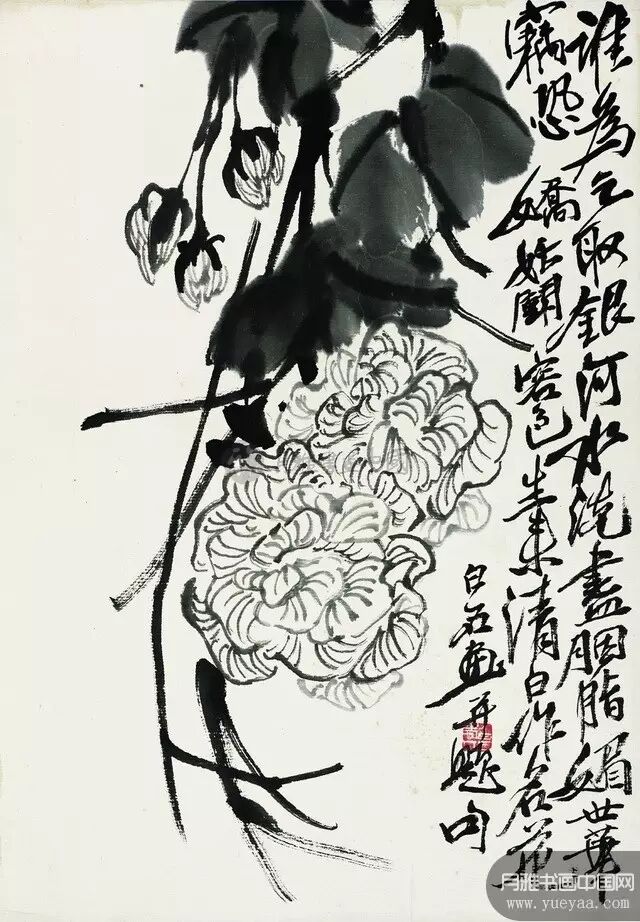 誰為乞取銀河水洗盡胭脂媚世華
竊恐嬌妬鬭容色生來清白作名花
白石畫并題句
月雅书画中国网
www.yueyaa.com